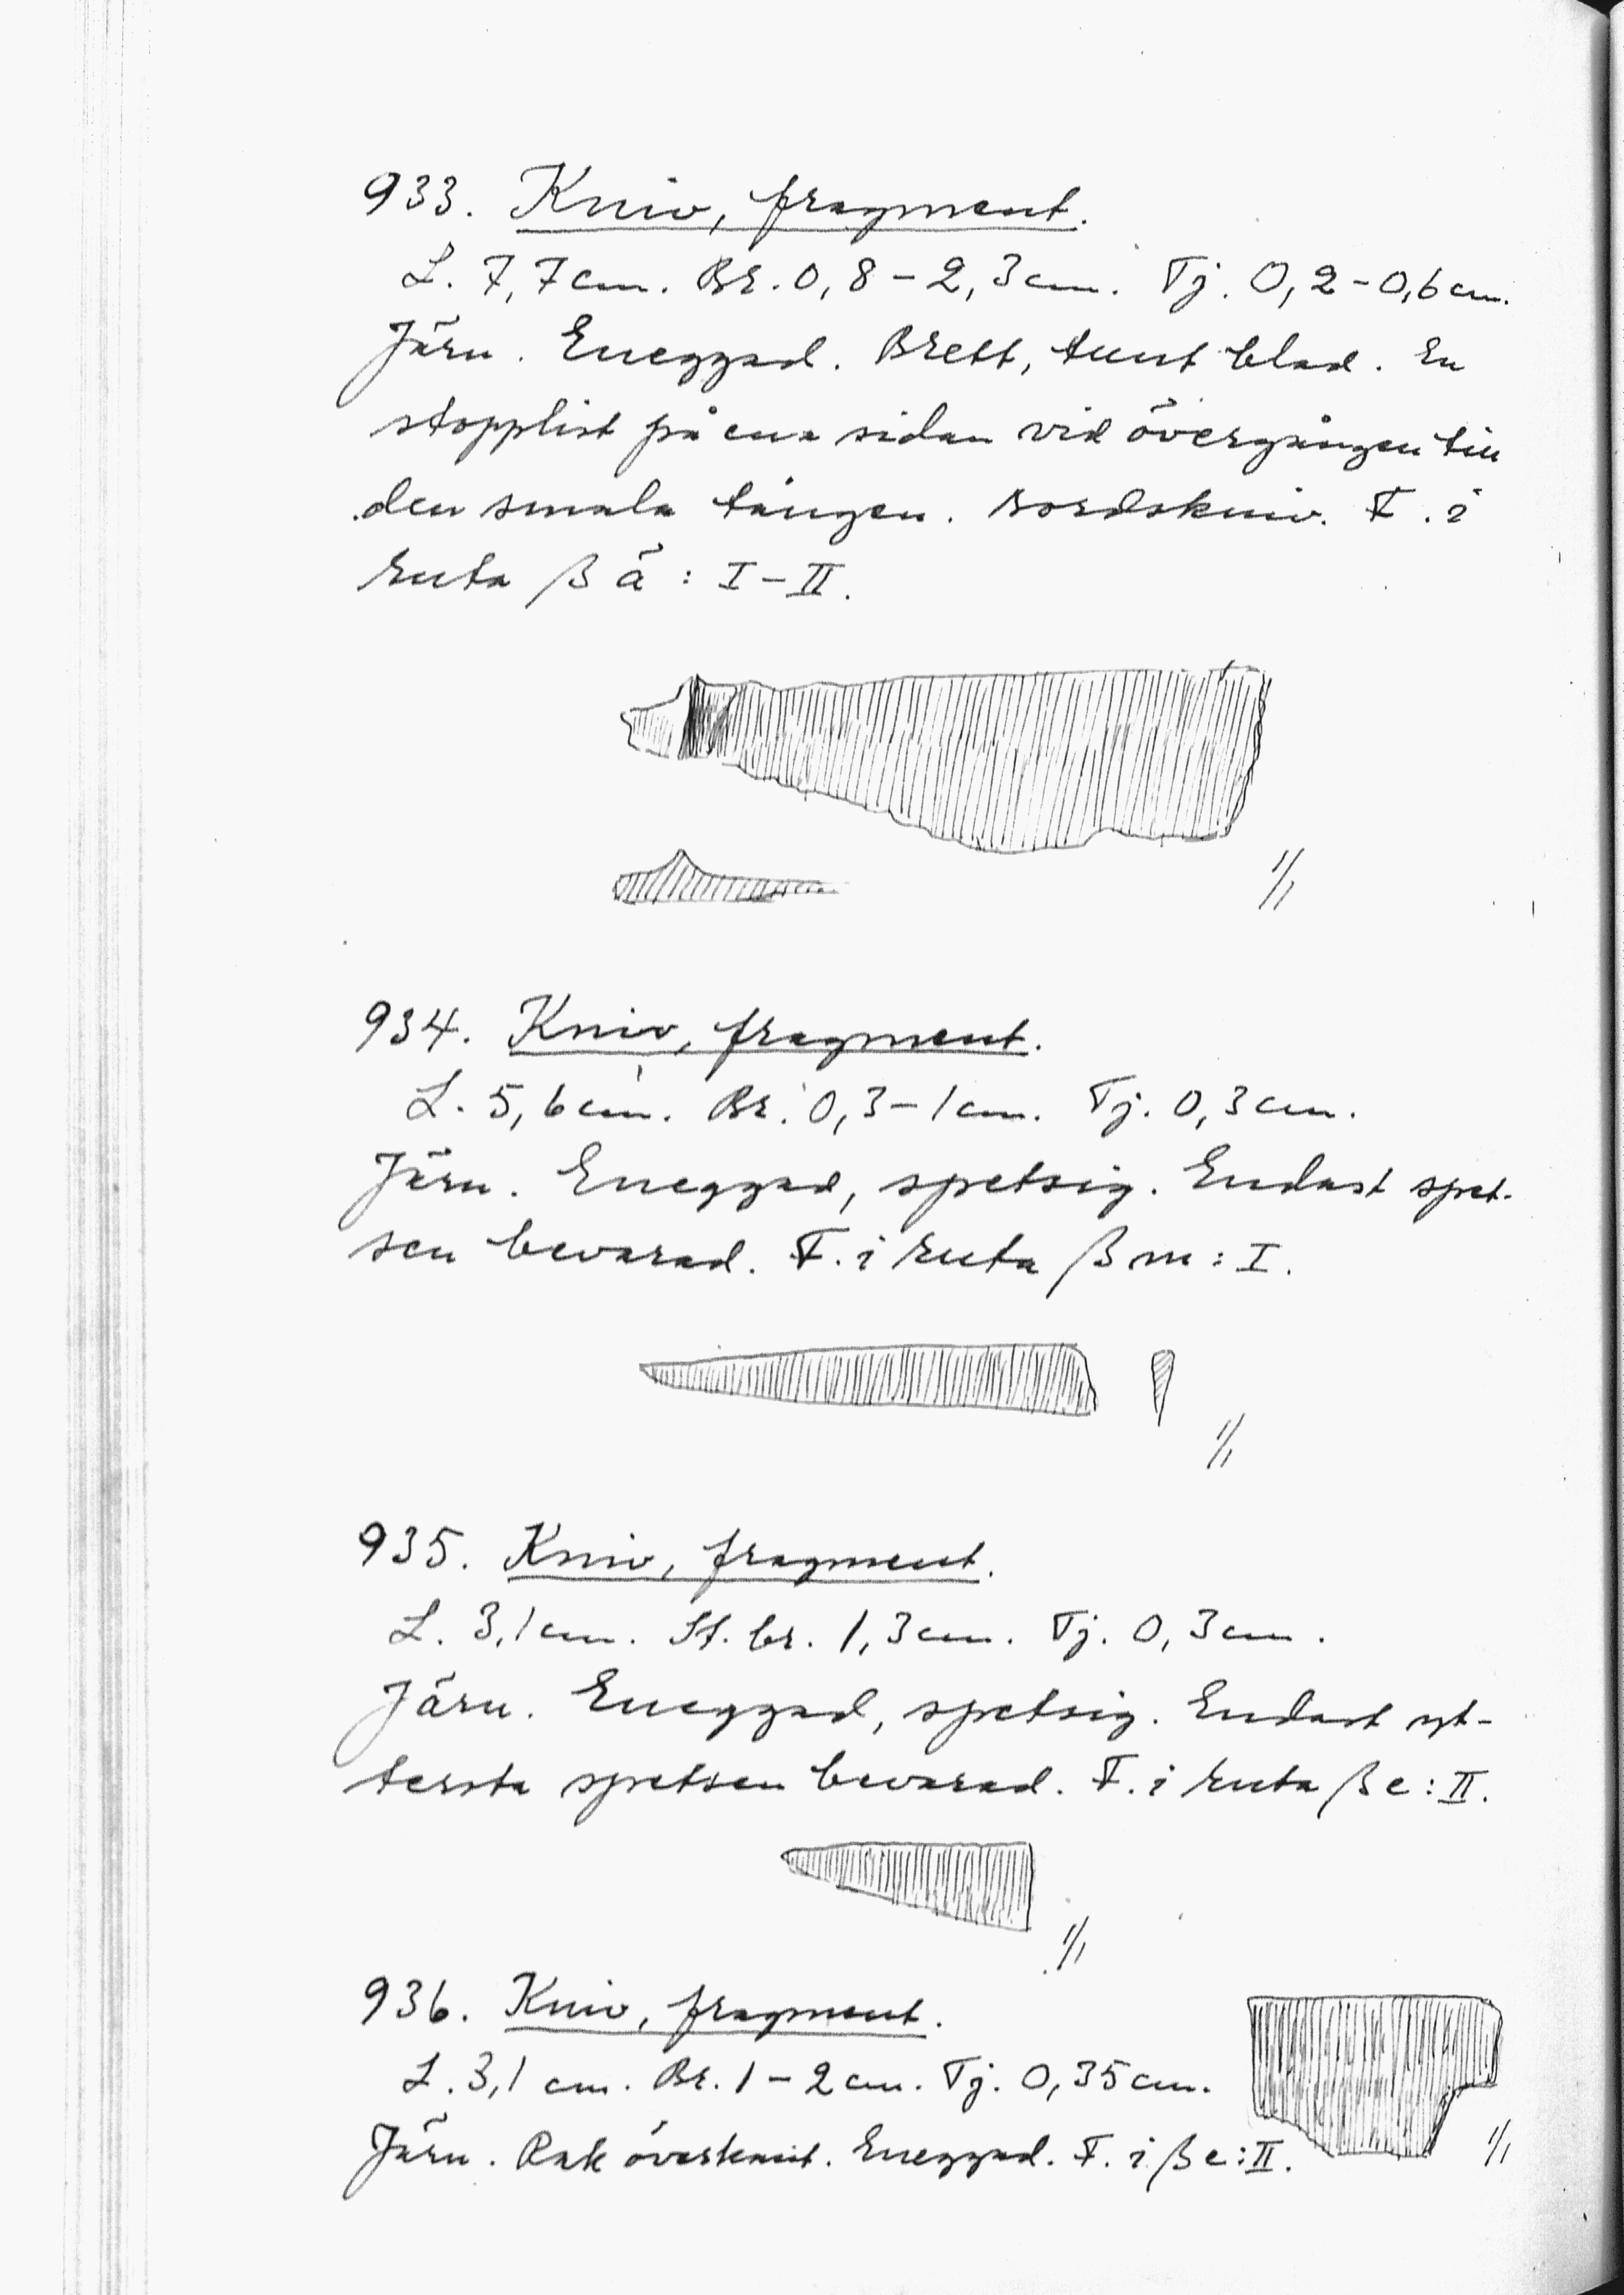 933. Kniv, fragment.
L. 7,7 cm. Br. 0,8-2,3 cm. Tj. 0,2-0,6 cm.
Järn. Eneggad. Brett, tunt blad. En
stopplist på ena sidan vid övergången till
den smala tången. Bordskniv. F. i
ruta ß ä : I-II.
1/1
934. Kniv, fragment.
L. 5,6 cm. Br. 0,3-1 cm. Tj. 0,3 cm.
Järn. Eneggad, spetsig. Endast spet-
sen bevarad. F. i ruta ß m : I.
1/1
935. Kniv, fragment.
L. 3,1 cm. St. br. 1,3 cm. Tj. 0,3 cm.
Järn. Eneggad, spetsig. Endast yt-
tersta spetsen bevarad. F. i ruta ß e : II.
1/1
936. Kniv, fragment.
L. 3,1 cm. Br. 1-2 cm. Tj. 0,35 cm.
Järn. Rak överkant. Eneggad. F. i ß e : II.
1/1